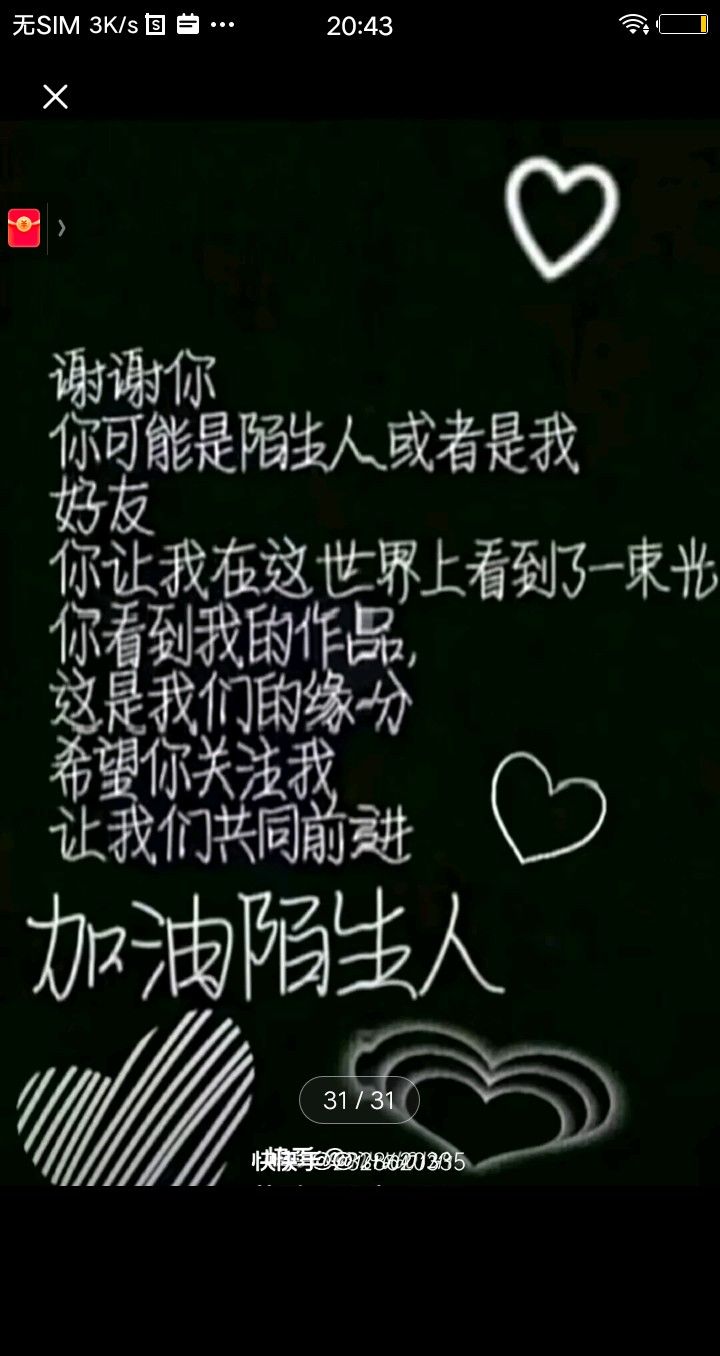 无SIM 3K/s 20:43
谢谢你
你可能是陌生人或者是我
好友
你让我在这世界上看到了一束光
你看到我的作品,
这是我们的缘分
希望你关注我
让我们共同前进
加油陌生人
31 / 31